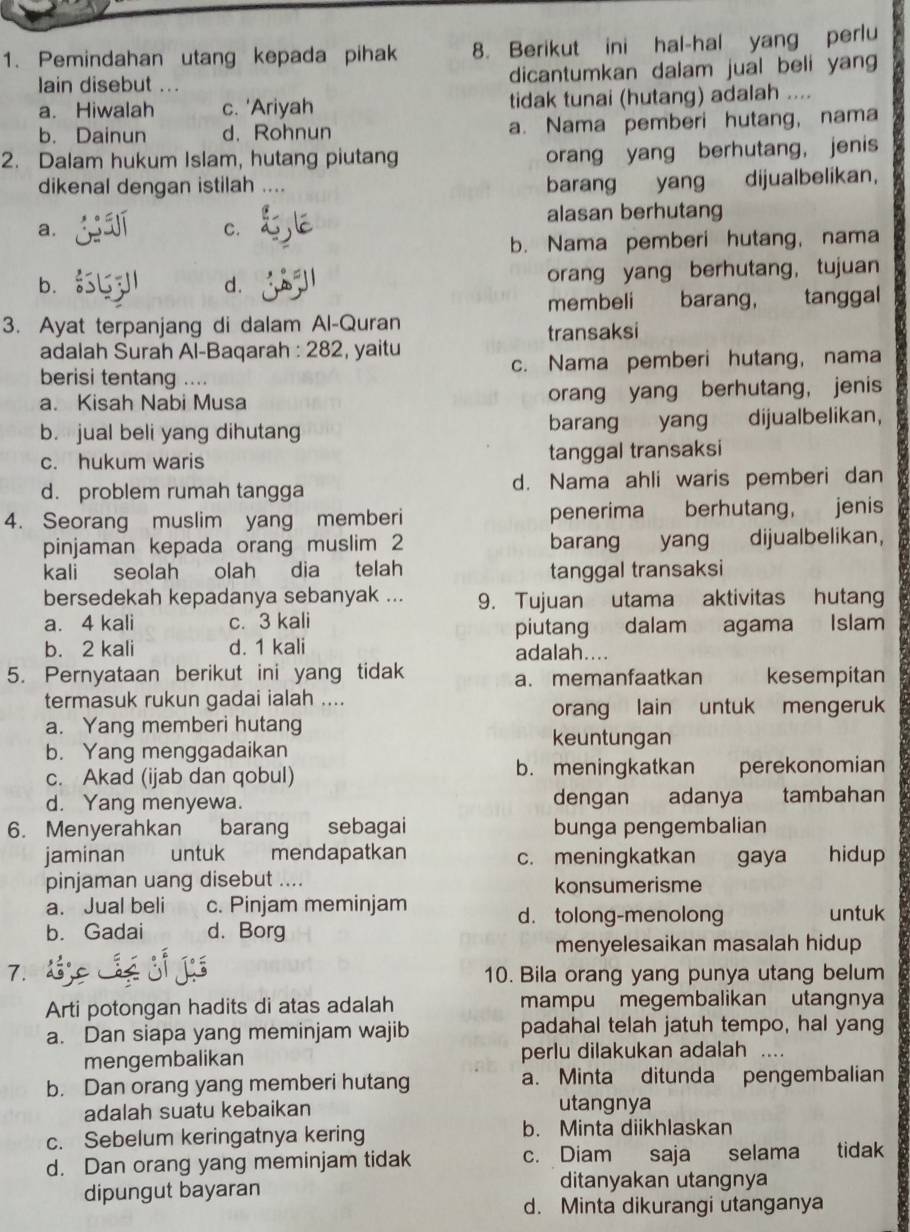 1. Pemindahan utang kepada pihak
lain disebut ...
a. Hiwalah c. 'Ariyah
b. Dainun d. Rohnun
2. Dalam hukum Islam, hutang piutang
dikenal dengan istilah ....
a. اَلدَّيْنُ c. عَارِيَةُ
b. الزِّيَادَةُ d. الرَّهْنُ
3. Ayat terpanjang di dalam Al-Quran
adalah Surah Al-Baqarah : 282, yaitu
berisi tentang ....
a. Kisah Nabi Musa
b. jual beli yang dihutang
c. hukum waris
d. problem rumah tangga
4. Seorang muslim yang memberi
pinjaman kepada orang muslim 2
kali seolah olah dia telah
bersedekah kepadanya sebanyak ...
a. 4 kali c. 3 kali
b. 2 kali d. 1 kali
5. Pernyataan berikut ini yang tidak
termasuk rukun gadai ialah ....
a. Yang memberi hutang
b. Yang menggadaikan
c. Akad (ijab dan qobul)
d. Yang menyewa.
6. Menyerahkan barang sebagai
jaminan untuk mendapatkan
pinjaman uang disebut ....
a. Jual beli c. Pinjam meminjam
b. Gadai d. Borg
7. قَبْلَ أَنْ يَجِفَّ عَرَقُهُ
Arti potongan hadits di atas adalah
a. Dan siapa yang meminjam wajib
mengembalikan
b. Dan orang yang memberi hutang
adalah suatu kebaikan
c. Sebelum keringatnya kering
d. Dan orang yang meminjam tidak
dipungut bayaran
8. Berikut ini hal-hal yang perlu
dicantumkan dalam jual beli yang
tidak tunai (hutang) adalah ....
a. Nama pemberi hutang, nama
orang yang berhutang, jenis
barang yang dijualbelikan,
alasan berhutang
b. Nama pemberi hutang, nama
orang yang berhutang, tujuan
membeli barang, tanggal
transaksi
c. Nama pemberi hutang, nama
orang yang berhutang, jenis
barang yang dijualbelikan,
tanggal transaksi
d. Nama ahli waris pemberi dan
penerima berhutang, jenis
barang yang dijualbelikan,
tanggal transaksi
9. Tujuan utama aktivitas hutang
piutang dalam agama Islam
adalah....
a. memanfaatkan kesempitan
orang lain untuk mengeruk
keuntungan
b. meningkatkan perekonomian
dengan adanya tambahan
bunga pengembalian
c. meningkatkan gaya hidup
konsumerisme
d. tolong-menolong untuk
menyelesaikan masalah hidup
10. Bila orang yang punya utang belum
mampu megembalikan utangnya
padahal telah jatuh tempo, hal yang
perlu dilakukan adalah ....
a. Minta ditunda pengembalian
utangnya
b. Minta diikhlaskan
c. Diam saja selama tidak
ditanyakan utangnya
d. Minta dikurangi utanganya